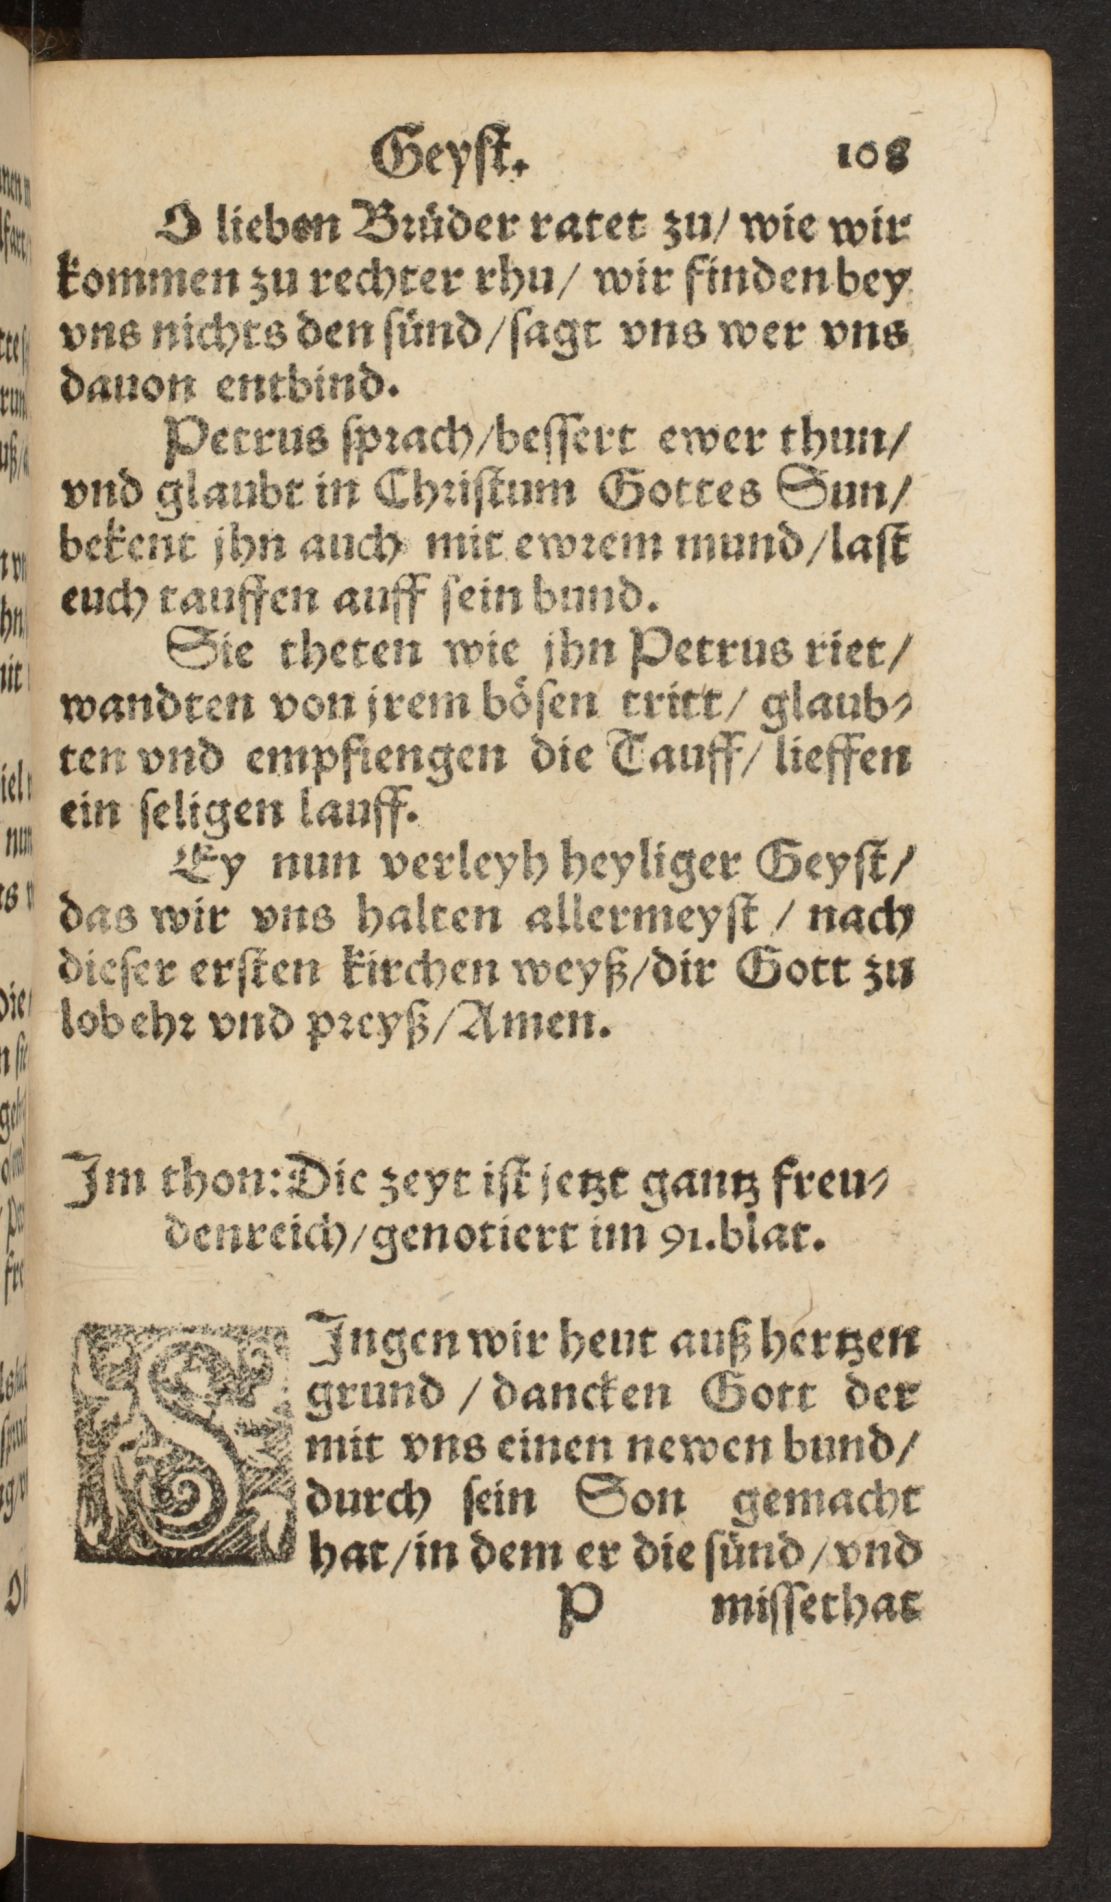 Geyſt. 108
O lieben Brüder ratet zu/ wie wir
kommen zu rechter rhu/ wir finden bey
vns nichts den ſünd/ſagt vns wer vns
dauon entbind.
Petrus ſprach/beſſert ewer thun/
vnd glaubt in Chriſtum Gottes Sun/
bekent jhn auch mit ewrem mund/laſt
euch tauffen auff ſein bund.
Sie theten wie jhn Petrus riet/
wandten von jrem böſen tritt/ glaub⸗
ten vnd empfiengen die Tauff/ lieffen
ein ſeligen lauff.
Ey nun verleyh heyliger Geyſt/
das wir vns halten allermeyſt / nach
dieſer erſten kirchen weyß/dir Gott zu
lob ehr vnd preyß/Amen.
Im thon: Die zeyt iſt jetzt gantz freu⸗
denreich/genotiert im 91.blat.
SIngen wir heut auß hertzen
grund / dancken Gott der
mit vns einen newen bund/
durch ſein Son gemacht
hat/in dem er die ſünd/vnd
P miſſethat